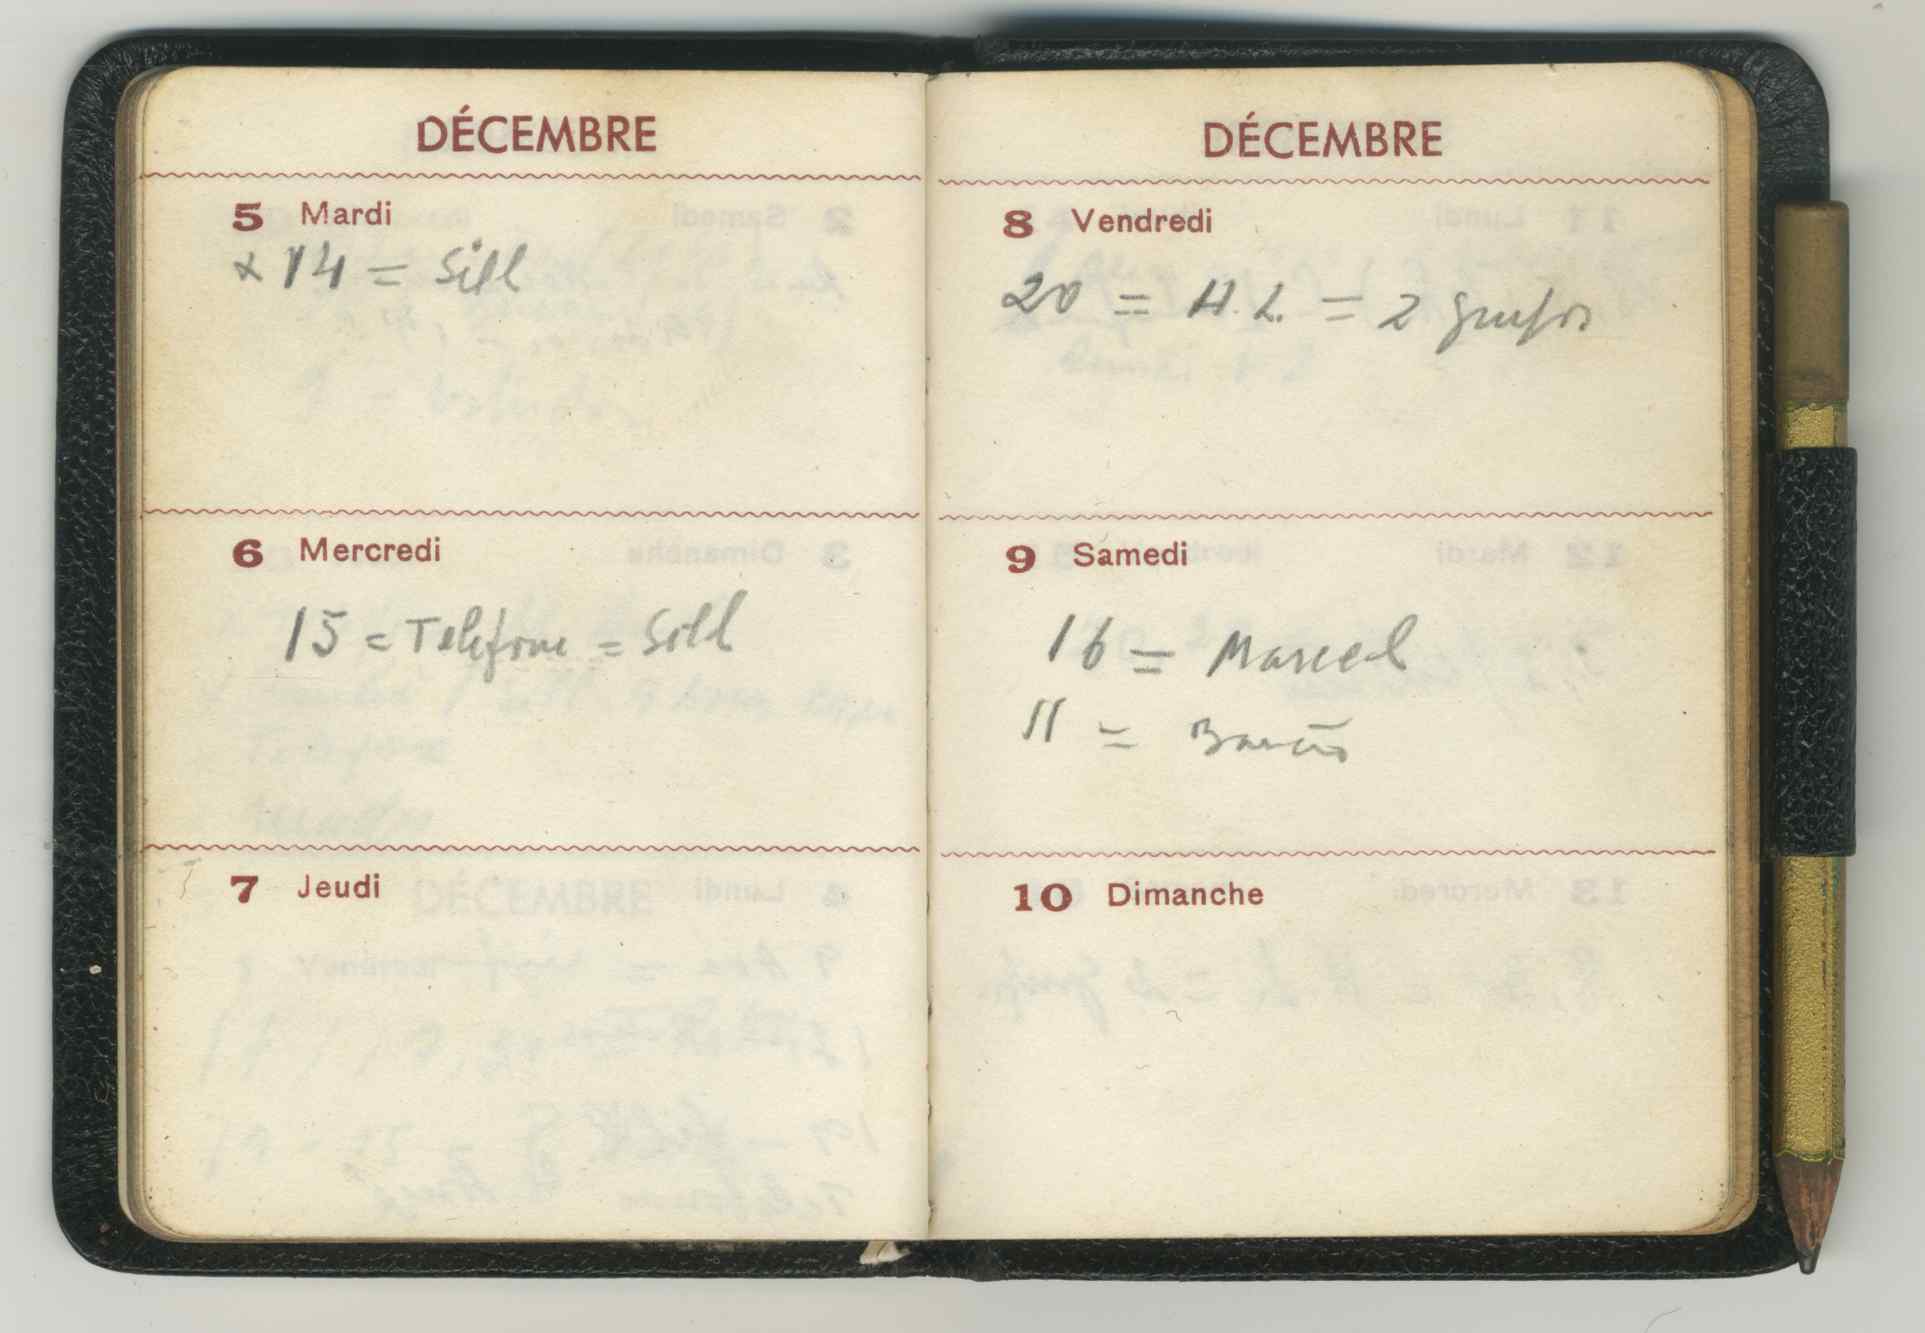 DÉCEMBRE
5 Mardi
x 14 = Sill
6 Mercredi
15 = Telefone = Sill
7 Jeudi
DÉCEMBRE
8 Vendredi
20 = H.L. = 2
9 Samedi
16 = Marcel
11 =
10 Dimanche